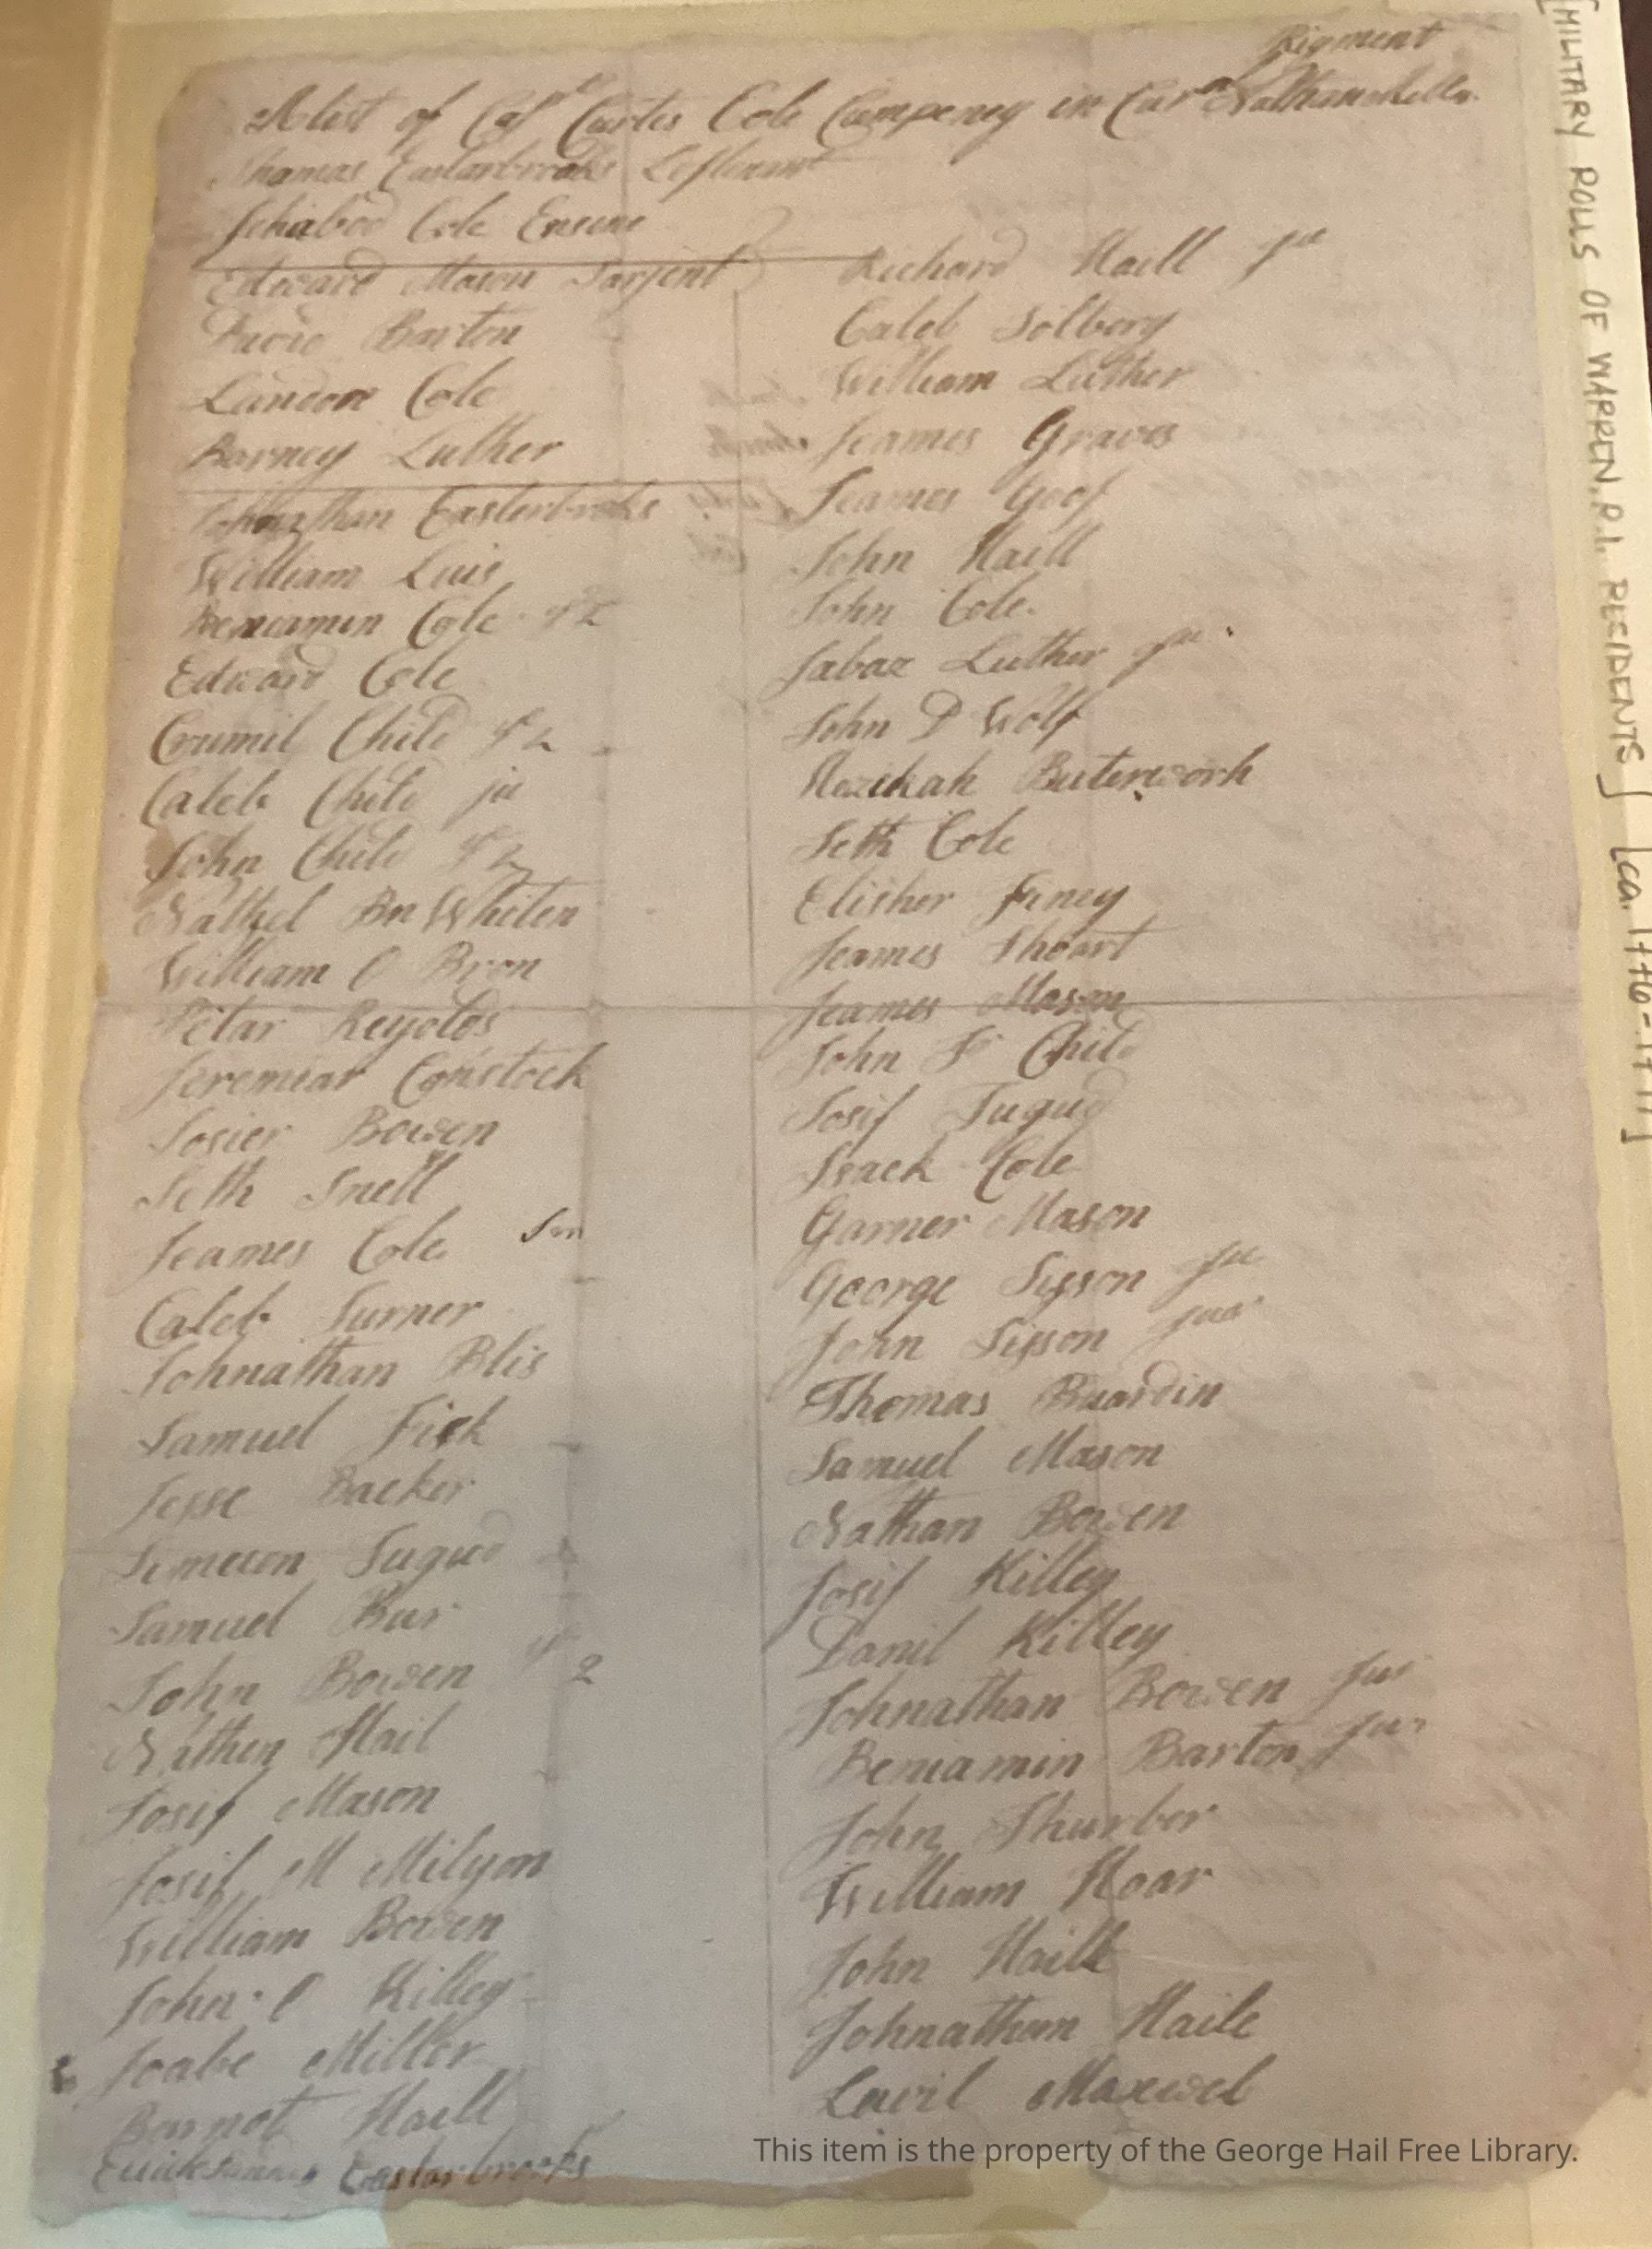 Rigment
A list of Capt Curtis Cole Compeney in Curnal Nathan
Thamas Eastarbrooks Leftenant
Ichabod Cole Ensine
Edward Mason Sarjent
David Barton
Landon Cole
Barney Luther
Johnathan Easterbrooks
William Luis
Beniamen Cole ye 2
Edward Cole
Crumil Child ye 2
Caleb Child ju
John Child ye 2
Nathel Bn Whiten
William O Bron
Petar Reyolds
Jeremiar Comstock
Josier Bowen
Seth Snell
Jeames Cole Snr
Caleb Turner
Johnathan Blis
Samuel Fisk
Jesse Backer
Simeon Tugud
Samuel Bur
John Bowen ye 2
Nathen Hail
Josif Mason
Josif M Milyon
William Bowen
John O Killey
Joabe Miller
Barnot Haill
Eastarbrooks
Richard Haill ju
Caleb Solbery
William Luther
Jeames Graves
Jeames Goof
John Haill
John Cole
Jabaz Luther ju
John D Wolf
Hezikah Buterworh
Seth Cole
Elisher Finey
Jeames Short
Jeames Mason
John Fr Child
Josif Tugud
Isack Cole
Garner Mason
George Sisson ju
John Sisson jur
Thomas Ruardin
Samuel Mason
Nathan Bowen
Josif Killey
Danil Killey
Johnathan Bowen jur
Beniamin Barton jur
John Thurber
William Hoar
John Haill
Johnathan Haile
Lavil Maxwel
[MILITARY ROLLS OF WARREN, R.I. RESIDENTS] [ca. 1776-1777]
This item is the property of the George Hail Free Library.